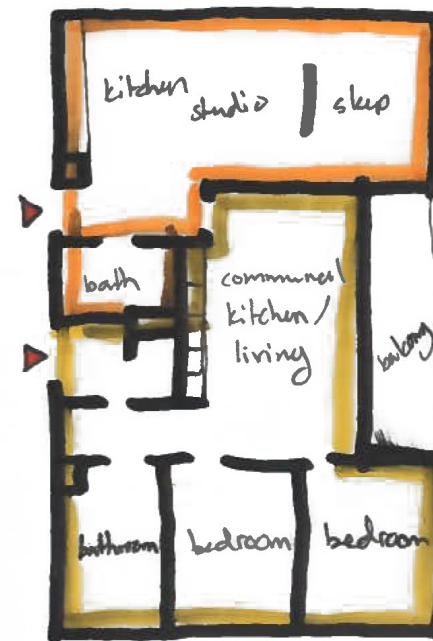 kitchen
studio
sleep
bath
communal
kitchen /
living
balcony
bathroom
bedroom
bedroom